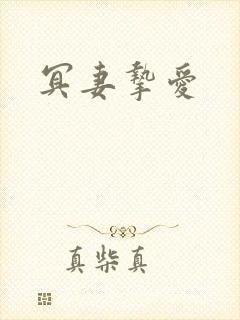 冥妻摯愛
真柴真